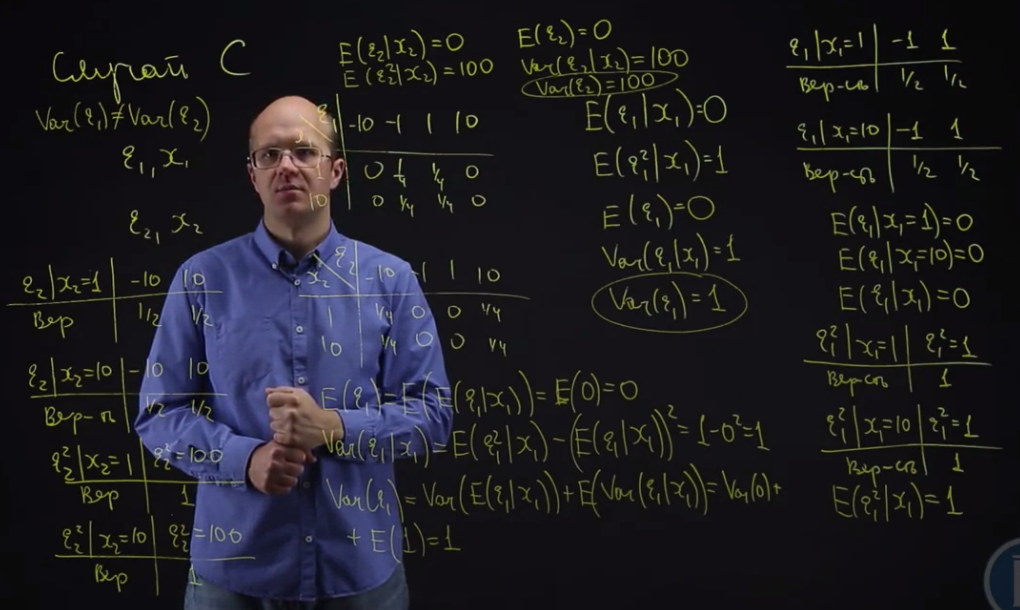 Случай C
Var(ε₁)≠Var(ε₂)
ε₁, x₁
ε₂, x₂
ε₂|x₂=1 | -10 10
Вер | 1/2 1/2
ε₂|x₂=10 | -10 10
Вер-ть | 1/2 1/2
ε₂²|x₂=1 | ε₂²=100
Вер | 1
ε₂²|x₂=10 | ε₂²=100
Вер | 1
E(ε₂|x₂)=0
E(ε₂²|x₂)=100
ε₁ -10 -1 1 10
1 | 0 1/4 1/4 0
10 | 0 1/4 1/4 0
x₂ ε₂ -10 -1 1 10
1 | 1/4 0 0 1/4
10 | 1/4 0 0 1/4
E(ε₁)=E(E(ε₁|x₁))=E(0)=0
Var(ε₁|x₁)=E(ε₁²|x₁)-(E(ε₁|x₁))²=1-0²=1
Var(ε₁)=Var(E(ε₁|x₁))+E(Var(ε₁|x₁))=Var(0)+
+E(1)=1
E(ε₂)=0
Var(ε₂|x₂)=100
Var(ε₂)=100
E(ε₁|x₁)=0
E(ε₁²|x₁)=1
E(ε₁)=0
Var(ε₁|x₁)=1
Var(ε₁)=1
ε₁|x₁=1 | -1 1
Вер-ть | 1/2 1/2
ε₁|x₁=10 | -1 1
Вер-ть | 1/2 1/2
E(ε₁|x₁=1)=0
E(ε₁|x₁=10)=0
E(ε₁|x₁)=0
ε₁²|x₁=1 | ε₁²=1
Вер-ть | 1
ε₁²|x₁=10 | ε₁²=1
Вер-ть | 1
E(ε₁²|x₁)=1